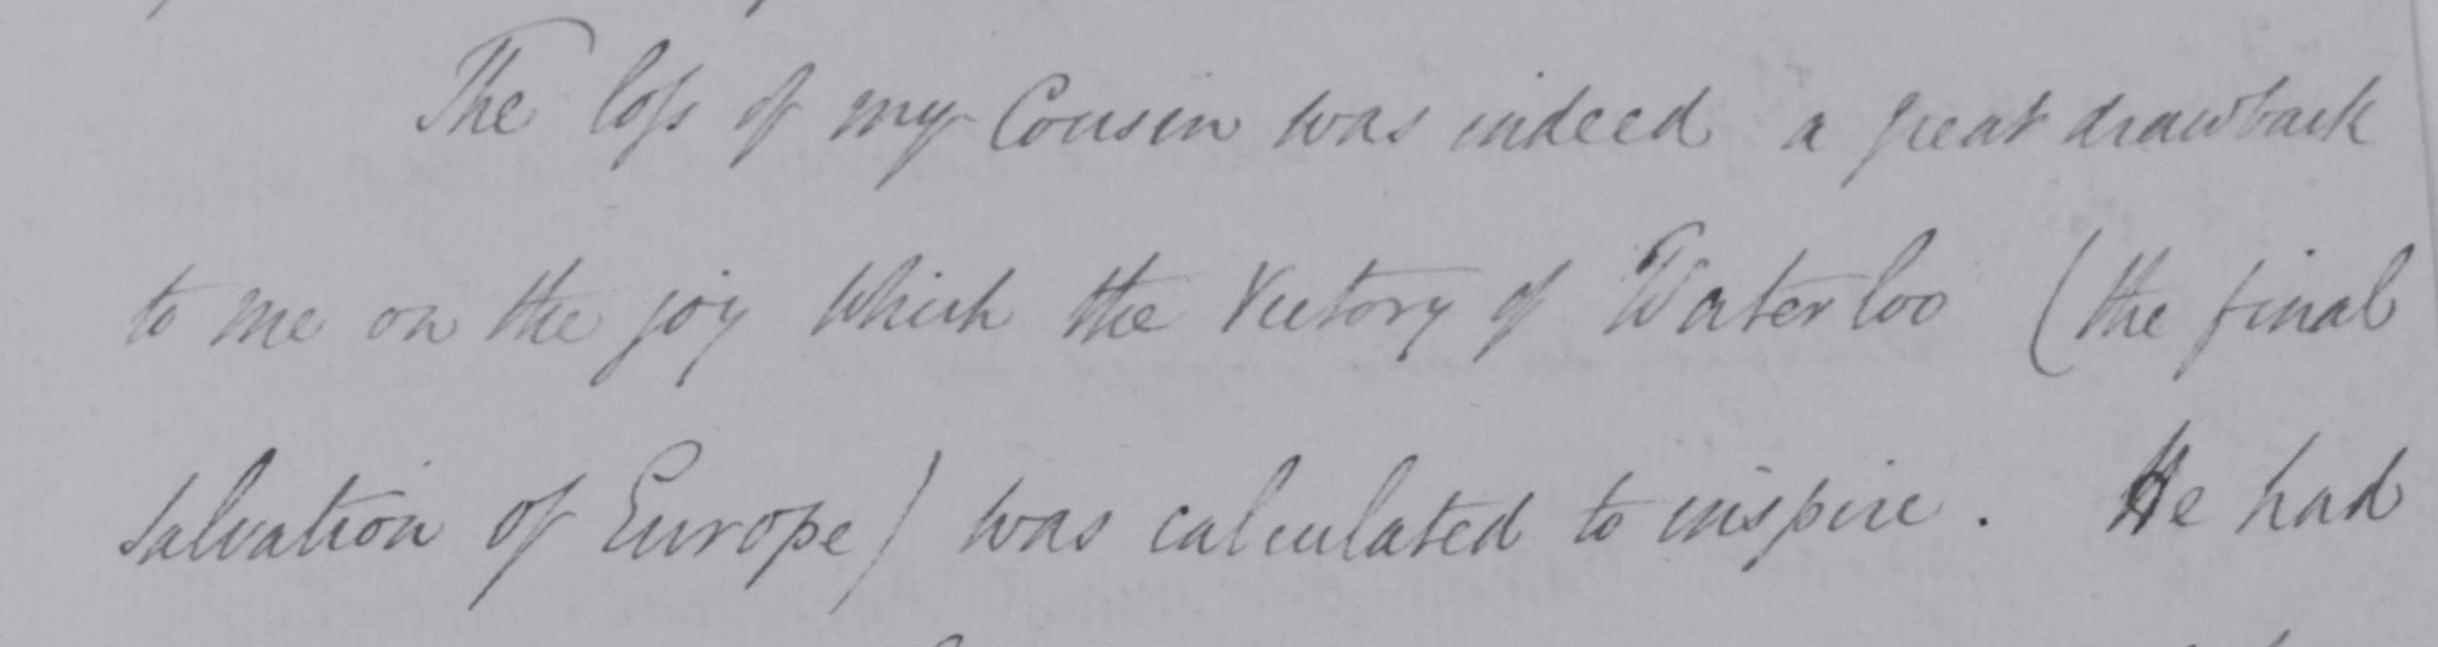 The loss of my Cousin was indeed a great drawback
to me on the joy which the Victory of Waterloo (the final
Salvation of Europe) was calculated to inspire. He had